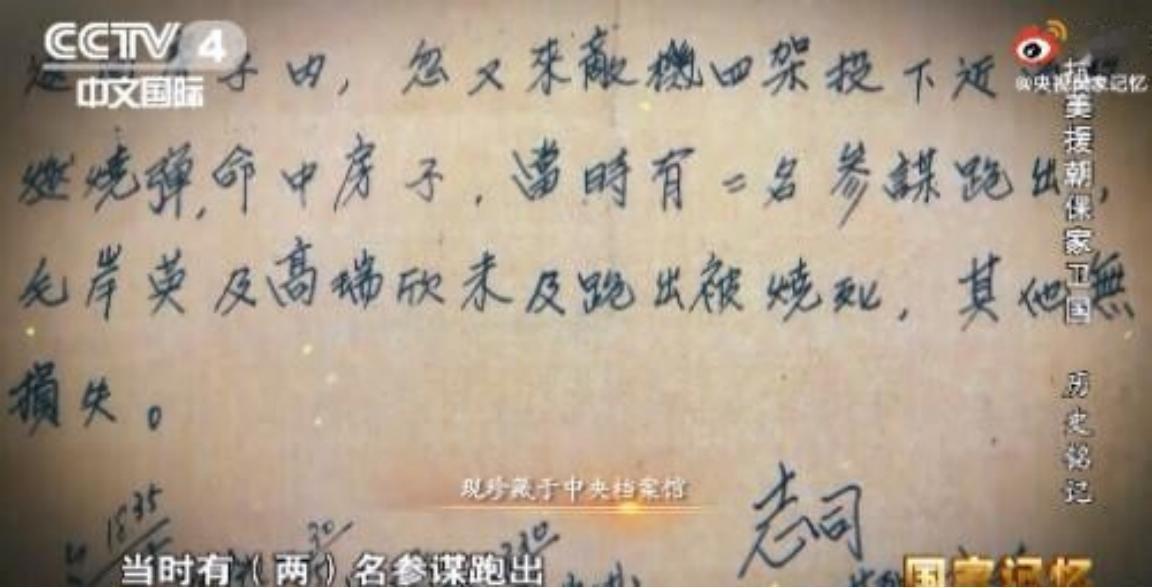 CCTV 4
中文国际
@央视国家记忆
子内，忽又來敵機四架投下近
燃燒弹，命中房子，當時有二名参謀跑出，
毛岸英及高瑞欣未及跑出被燒死，其他無
損失。
抗美援朝保家卫国 历史铭记
现珍藏于中央档案馆
志司
1835
30
230
当时有（两）名参谋跑出
国家记忆